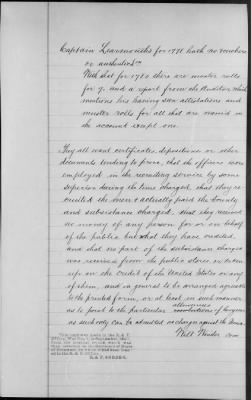 Captain Learmonth's for 1781 hath no vouchers
or authentic'n
With that for 1780 there are muster rolls
for 9. and a report from the Auditor which
mentions his having seen attestations and
muster rolls for all that are named in
the account except one.
They all want certificates, depositions or other
documents tending to prove, that the officers were
employed in the recruiting service by some
superior during the time charged, that they re-
cruited the men & actually paid the bounty
and subsistance charged, that they received
no money of any person for or on behalf
of the public but what they have credited,
and that no part of the subsistance charged
was received from the public stores or taken
up on the credit of the United States or any
of them, and in general to be arranged agreeable
to the printed form, or at least in such manner
as to point to the particular allowances resolutions of Congress
as such only can be admitted as charges against the
Will Winder